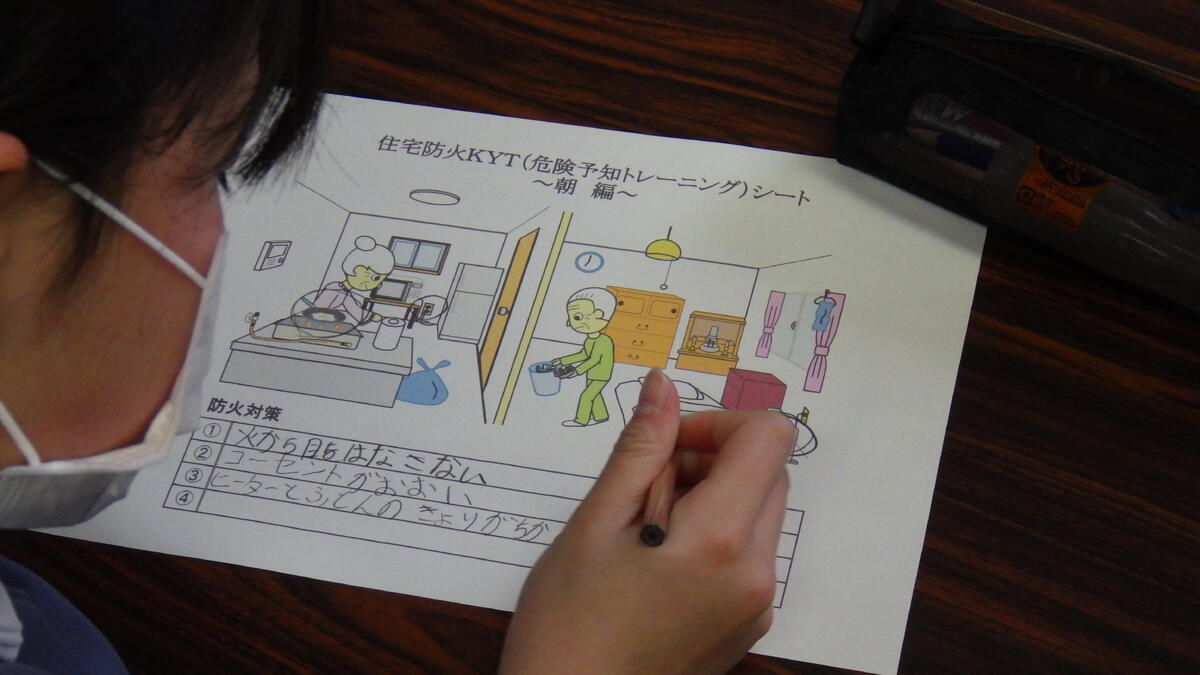 住宅防火KYT(危険予知トレーニング)シート
～朝 編～
防火対策
① 火から目をはなさない
② コーセントがおおい
③ ヒーターとふとんのきょりがちか
④